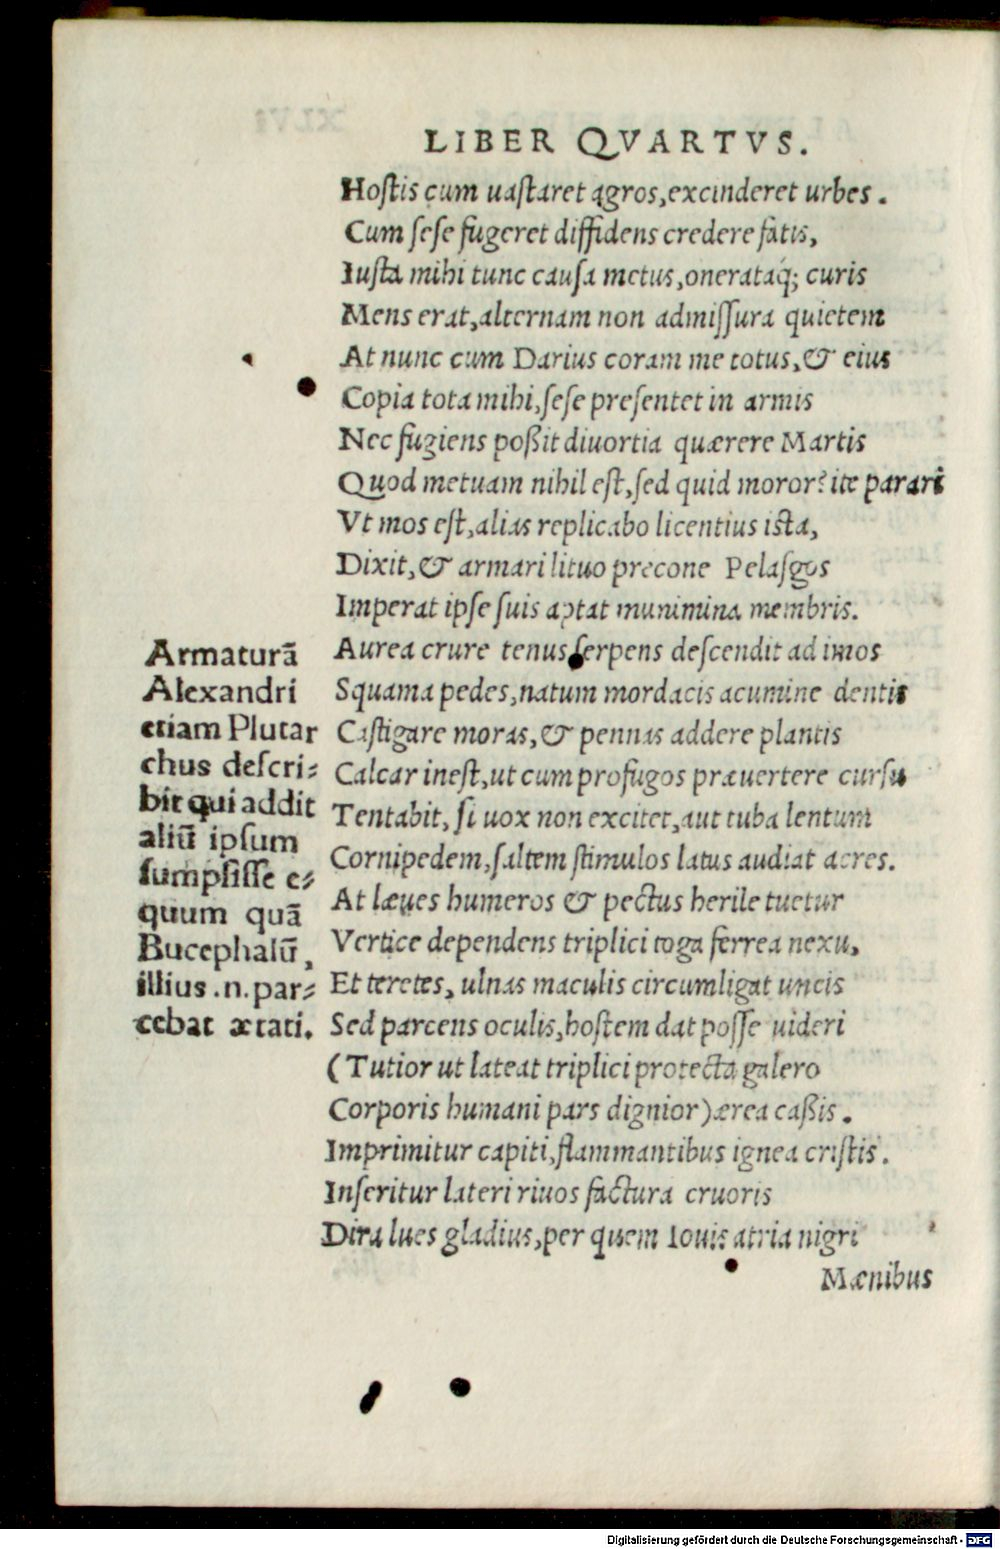 LIBER QVARTVS.
Hoſtis cum uaſtaret agros,excinderet urbes.
Cum ſeſe fugeret diffidens credere fatis,
Iuſta mihi tunc cauſa metus,onerataq́; curis
Mens erat,alternam non admiſſura quietem
At nunc cum Darius coram me totus,& eius
Copia tota mihi,ſeſe preſentet in armis
Nec fugiens poßit diuortia quærere Martis
Quod metuam nihil eſt,ſed quid moror? ite parari
Vt mos eſt,alias replicabo licentius iſta,
Dixit,& armari lituo precone Pelaſgos
Imperat ipſe ſuis aptat munimina membris.
Aurea crure tenus ſerpens deſcendit ad imos
Squama pedes,natum mordacis acumine dentis
Caſtigare moras,& pennas addere plantis
Calcar ineſt,ut cum profugos præuertere curſu
Tentabit, ſi uox non excitet,aut tuba lentum
Cornipedem,ſaltem ſtimulos latus audiat acres.
At læues humeros & pectus herile tuetur
Vertice dependens triplici toga ferrea nexu,
Et teretes, ulnas maculis circumligat uncis
Sed parcens oculis,hoſtem dat poſſe uideri
(Tutior ut lateat triplici protecta galero
Corporis humani pars dignior)ærea caßis.
Imprimitur capiti,flammantibus ignea criſtis.
Inſeritur lateri riuos factura cruoris
Dira lues gladius,per quem Iouis atria nigri
Mænibus
Armaturā
Alexandri
etiam Plutar
chus deſcri⸗
bit qui addit
aliū ipſum
ſumpſiſſe e⸗
quum quā
Bucephalū,
illius .n. par⸗
cebat ætati.
Digitalisierung gefördert durch die Deutsche Forschungsgemeinschaft - DFG